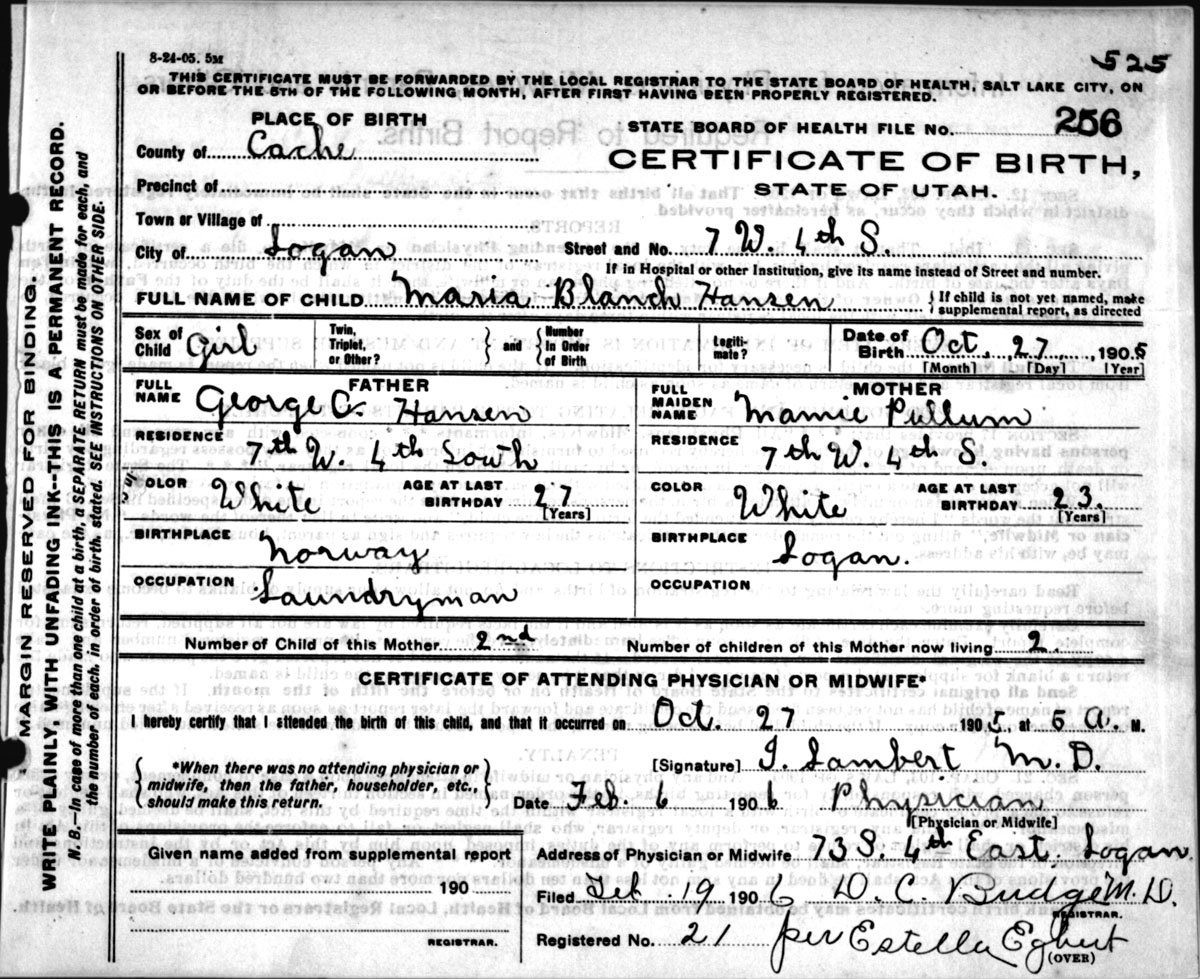 8-24-05. 5M
525
THIS CERTIFICATE MUST BE FORWARDED BY THE LOCAL REGISTRAR TO THE STATE BOARD OF HEALTH, SALT LAKE CITY, ON
OR BEFORE THE 5TH OF THE FOLLOWING MONTH, AFTER FIRST HAVING BEEN PROPERLY REGISTERED.
PLACE OF BIRTH
STATE BOARD OF HEALTH FILE NO. 256
County of Cache
CERTIFICATE OF BIRTH,
Precinct of
STATE OF UTAH.
Town or Village of
City of Logan Street and No. 7 W. 4th S.
If in Hospital or other Institution, give its name instead of Street and number.
FULL NAME OF CHILD Maria Blanch Hansen { If child is not yet named, make
supplemental report, as directed
Sex of Child Girl Twin, Triplet, or Other? } and { Number in Order of Birth Legiti-mate? Date of Birth Oct. 27, 1905
[Month] [Day] [Year]
FATHER MOTHER
FULL NAME George C. Hansen FULL MAIDEN NAME Mamie Pullum
RESIDENCE RESIDENCE
7th W. 4th South 7th W. 4th S.
COLOR White AGE AT LAST BIRTHDAY 27 [Years] COLOR White AGE AT LAST BIRTHDAY 23. [Years]
BIRTHPLACE Norway BIRTHPLACE Logan.
OCCUPATION Laundryman OCCUPATION
Number of Child of this Mother 2nd Number of children of this Mother now living 2
CERTIFICATE OF ATTENDING PHYSICIAN OR MIDWIFE*
I hereby certify that I attended the birth of this child, and that it occurred on Oct. 27 1905 at 6 a. M.
{ *When there was no attending physician or
midwife, then the father, householder, etc.,
should make this return. }
[Signature] T. Lambert M. D.
Date Feb. 6 1906 Physician
[Physician or Midwife]
Given name added from supplemental report
190
REGISTRAR.
Address of Physician or Midwife 73 S. 4th East, Logan
Filed Feb 19 1906 D. C. Budge M. D.
REGISTRAR.
Registered No. 21 per Estella Egbert
(OVER)
MARGIN RESERVED FOR BINDING.
WRITE PLAINLY, WITH UNFADING INK--THIS IS A PERMANENT RECORD.
N. B.—In case of more than one child at a birth, a SEPARATE RETURN must be made for each, and
the number of each, in order of birth, stated. SEE INSTRUCTIONS ON OTHER SIDE.